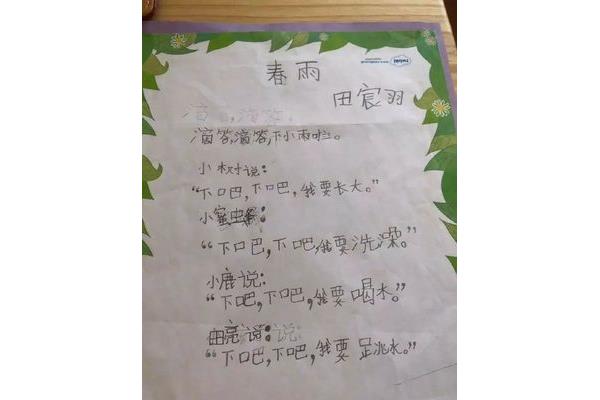 春雨
田宸羽
滴答,滴答,
滴答,滴答,下小雨啦。
小树说:
“下吧,下吧,我要长大。”
小蜜虫:
“下吧,下吧,我要洗澡。”
小鹿说:
“下吧,下吧,我要喝水。”
由亮说:说:
“下吧,下吧,我要跳水。”
twinkl